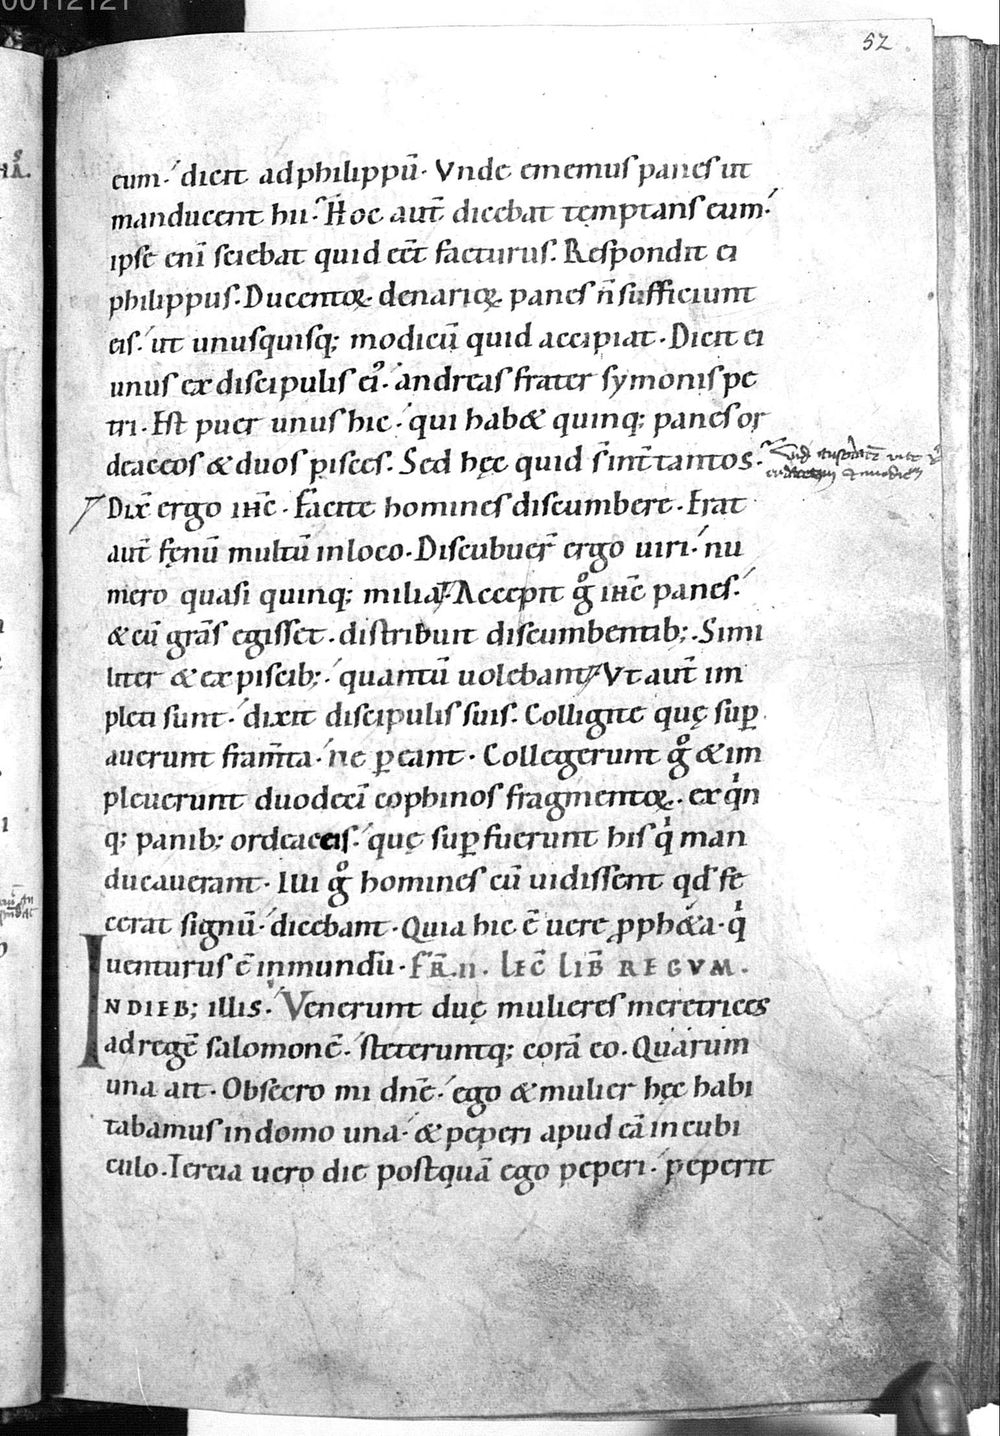 00112121
52
eum· dicit ad philippū· Vnde ememus panes ut
manducent hii· Hoc aut̄ dicebat temptans eum·
ipse eni̅ sciebat quid eēt facturus. Respondit ei
philippus· Ducentoꝝ denarioꝝ panes n̄ sufficiunt
eis· ut unusquisq; modicū quid accipiat· Dicit ei
unus ex discipulis ei᷒· andreas frater symonis pe
tri· Est puer unus hic· qui habet quinq; panes or
deaceos & duos pisces· Sed hęc quid s̄ int̄ tantos·
Dix̄ ergo ih̄c· Facite homines discumbere· Erat
aut̄ fęnū multū in loco· Discubuer̄ ergo uiri· nu
mero quasi quinq; milia· Accepit gͦ ih̄c panes·
& cū grās egisset· distribuit discumbentib;· Simi
liter & ex piscib;· quantū uolebant· Vt aut̄ im
pleti sunt· dixit discipulis suis· Colligite quę suꝑ
auerunt fram̄ta· ne ꝑeant· Collegerunt gͦ & im
pleuerunt duodeci̅ cophinos fragmentoꝝ· ex qͥn
q; panib; ordeaceis· quę suꝑfuerunt his qͥ man
ducauerant· Illi gͦ homines cū uidissent qđ fe
cerat signū· dicebant· Quia hic ē uere ꝓph&a· qͥ
uenturus ē in mundū· FR̄.II. LEC̄ LIB̄ REGVM.
INDIEB; illis. Venerunt duę mulieres meretrices
ad regē salomonē· steteruntq; corā eo. Quarum
una ait· Obsecro mi dn̄e· ego & mulier hęc habi
tabamus in domo una· & peperi apud eā in cubi
culo. Tercia uero die postquā ego peperi· peperit